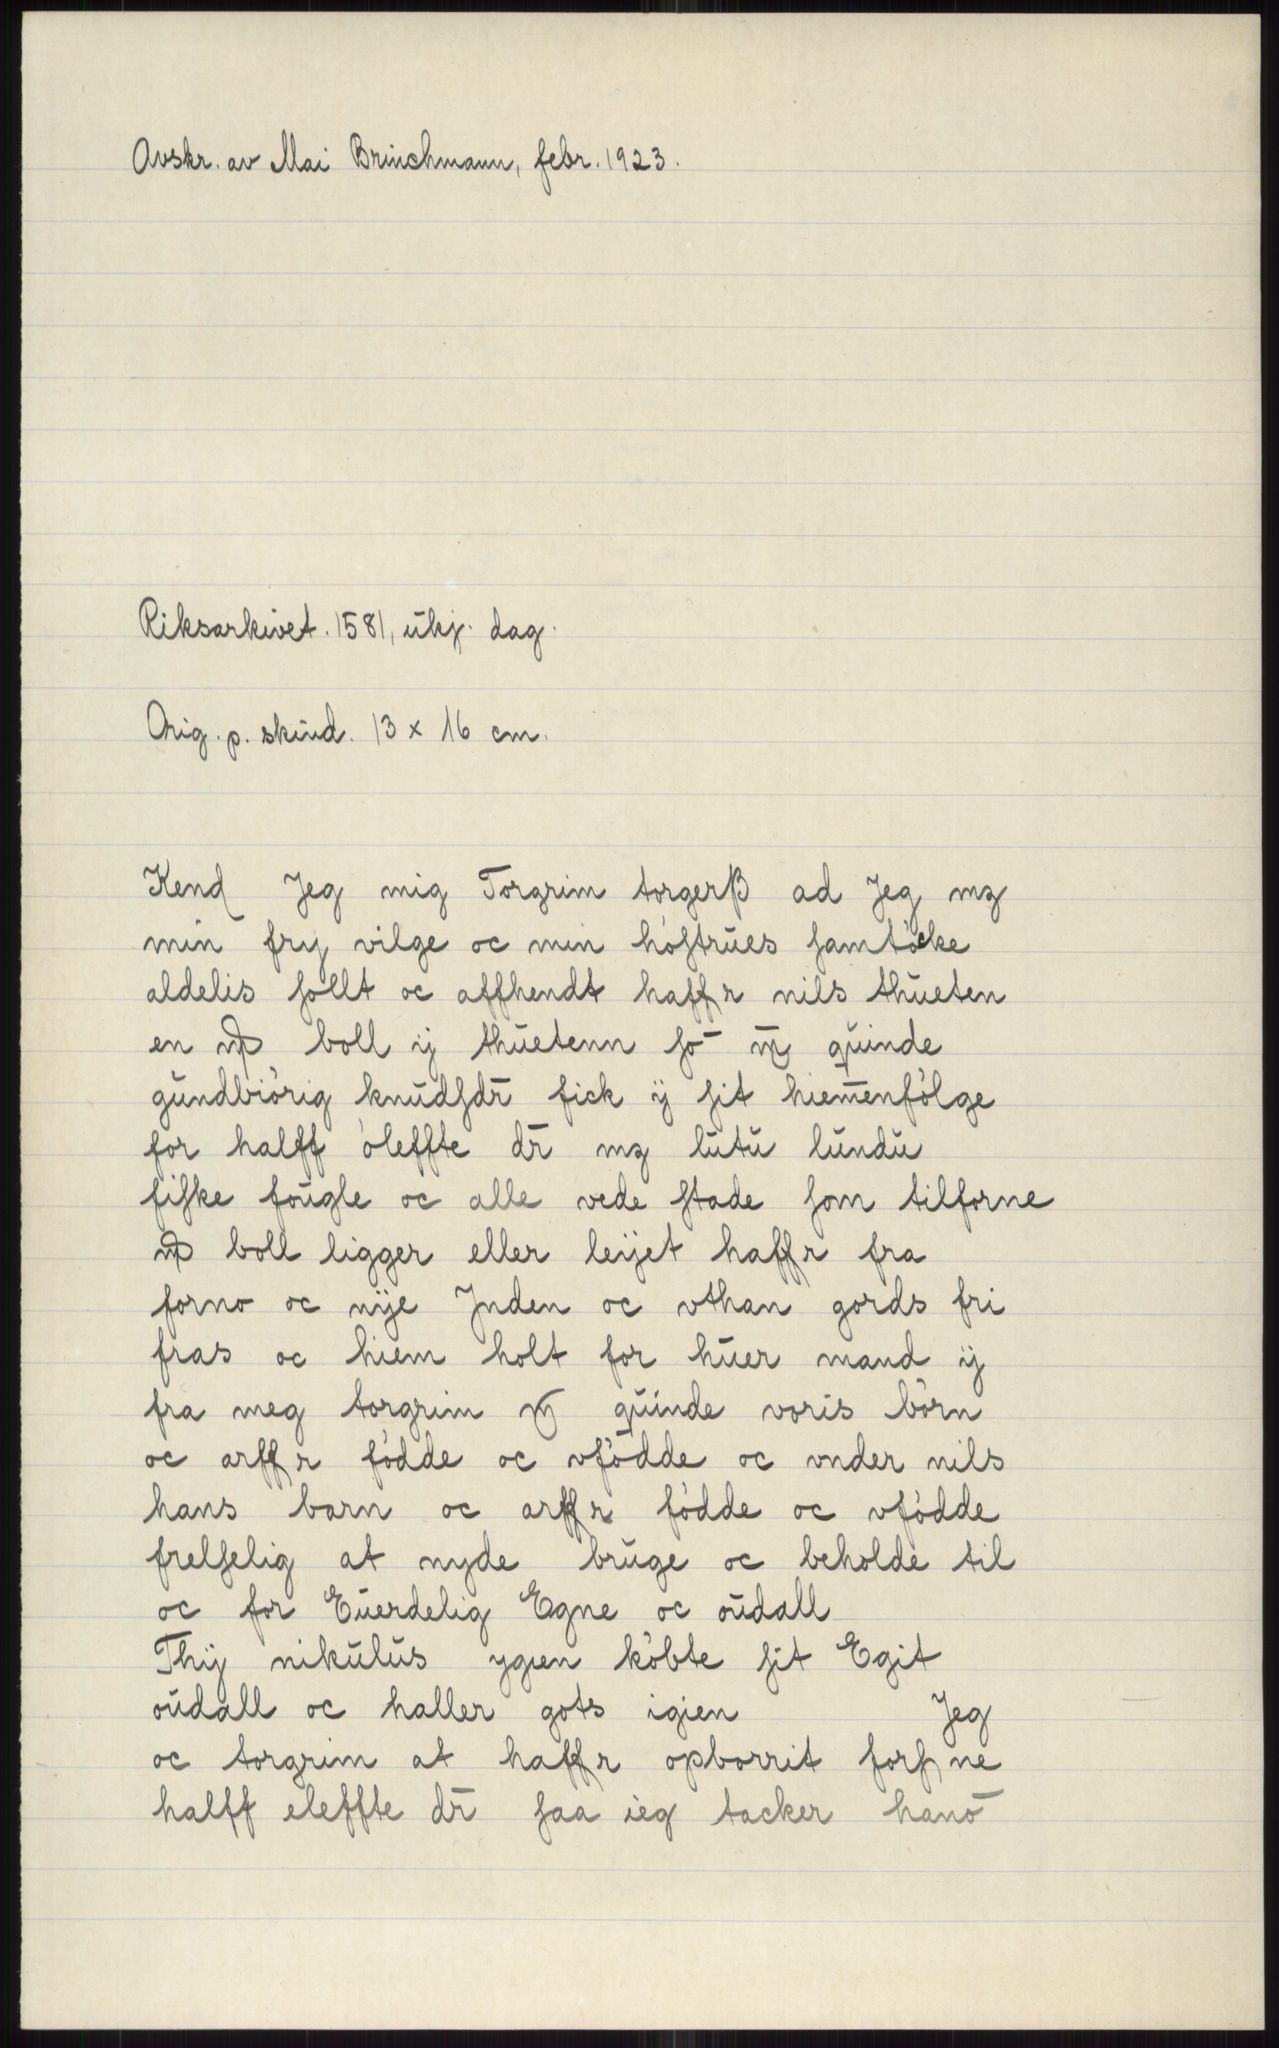 Avskr. av Mai Brinchmann, febr. 1923.
Riksarkivet. 1581, ukj. dag.
Orig. p. skind. 13 x 16 cm.
Kend Jeg mig Torgrim torgerß ad Jeg mz
min fry vilge oc min høſtrues ſamtøcke
aldelis ſollt oc affhendt haffr nils thueten
en boll ij thuetenn ſo quinde
gundbiørig knudſdr̄ fick ÿ ſit hiem̄enfølge
for halff øleffte dr̄ mz lutu lundu
fiſke fougle oc alle vede ſtade ſom tilforne
boll ligger eller leijet haffr fra
forno oc nije Jnden oc vthan gords fri
fras oc hiem holt for huer mand ij
fra meg torgrim quinde voris børn
oc arffr fødde oc vfødde oc vnder nils
hans barn oc arffr fødde oc vfødde
frelſelig at nyde bruge oc beholde til
oc for Euerdelig Egne oc oudall
Thij nikulus ygien købte ſit Egit
oudall oc haller gots igien Jeg
oc torgrim at haffr opborrit forſne
halff eleffte dr̄ ſaa ieg tacker hanō